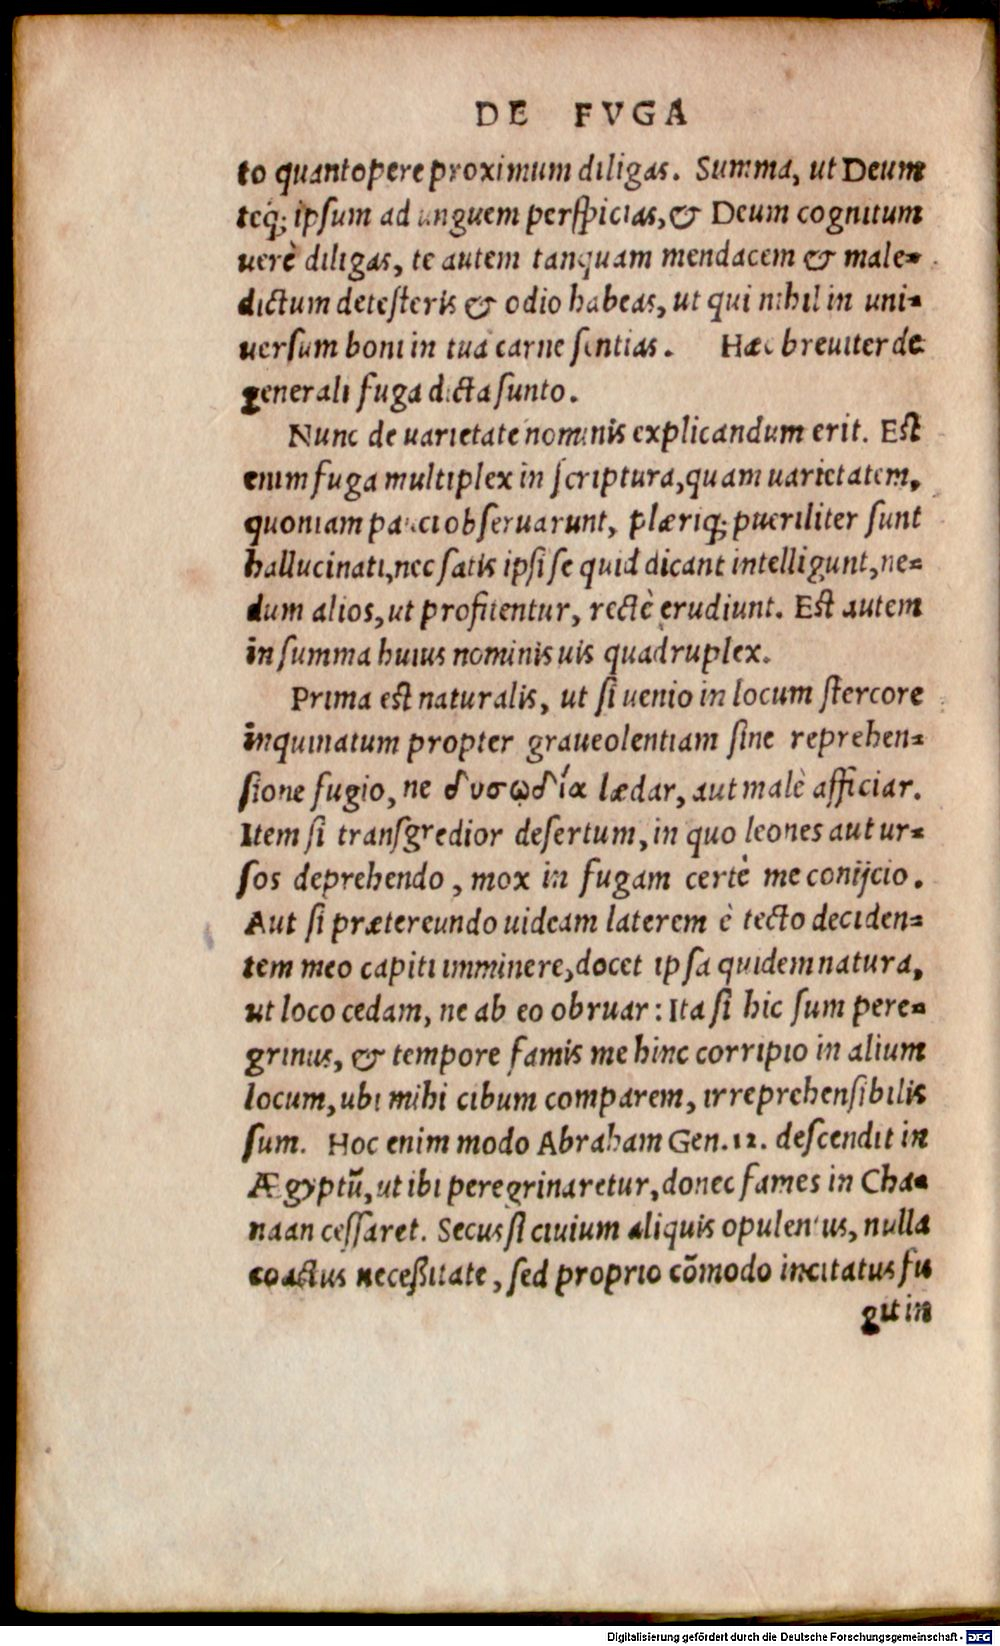 DE FVGA
to quantopere proximum diligas. Summa, ut Deum
teq; ipsum ad unguem perspicias, & Deum cognitum
uerè diligas, te autem tanquam mendacem & male-
dictum detesteris & odio habeas, ut qui nihil in uni-
uersum boni in tua carne sentias. Hæc breuiter de
generali fuga dicta sunto.
Nunc de uarietate nominis explicandum erit. Est
enim fuga multiplex in scriptura, quam uarietatem,
quoniam pauci obseruarunt, plæriq; pueriliter sunt
hallucinati, nec satis ipsi se quid dicant intelligunt, ne-
dum alios, ut profitentur, rectè erudiunt. Est autem
in summa huius nominis uis quadruplex.
Prima est naturalis, ut si uenio in locum stercore
inquinatum propter graueolentiam sine reprehen-
sione fugio, ne δυσωδία lædar, aut malè afficiar.
Item si transgredior desertum, in quo leones aut ur-
sos deprehendo, mox in fugam certè me conijcio.
Aut si prætereundo uideam laterem è tecto deciden-
tem meo capiti imminere, docet ipsa quidem natura,
ut loco cedam, ne ab eo obruar: Ita si hic sum pere-
grinus, & tempore famis me hinc corripio in alium
locum, ubi mihi cibum comparem, irreprehensibilis
sum. Hoc enim modo Abraham Gen. 12. descendit in
Ægyptũ, ut ibi peregrinaretur, donec fames in Cha-
naan cessaret. Secus si ciuium aliquis opulentus, nulla
coactus neceßitate, sed proprio cõmodo incitatus fu
git in
Digitalisierung gefördert durch die Deutsche Forschungsgemeinschaft - DFG